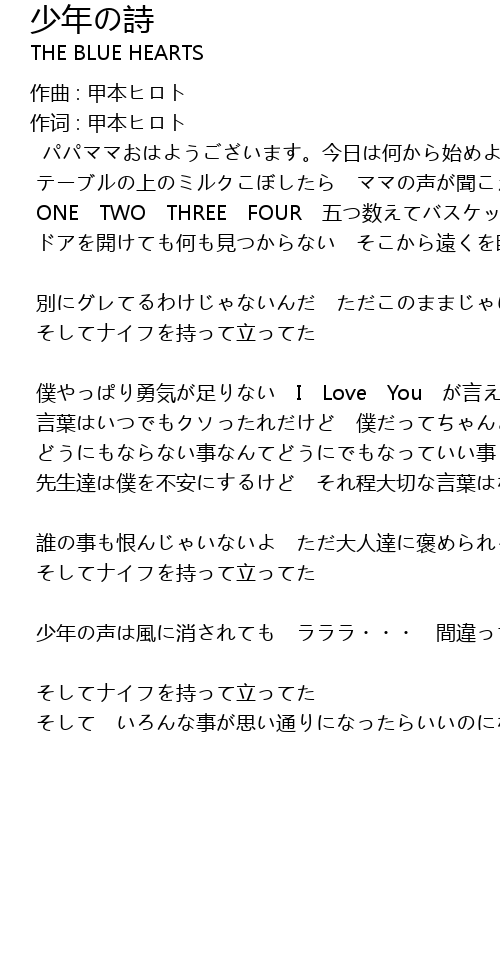 少年の詩
THE BLUE HEARTS
作曲 : 甲本ヒロト
作词 : 甲本ヒロト
パパママおはようございます。今日は何から始めよ
テーブルの上のミルクこぼしたら　ママの声が聞こ
ONE　TWO　THREE　FOUR　五つ数えてバスケッ
ドアを開けても何も見つからない　そこから遠くを
別にグレてるわけじゃないんだ　ただこのままじゃ
そしてナイフを持って立ってた
僕やっぱり勇気が足りない　I　Love　You　が言え
言葉はいつでもクソったれだけど　僕だってちゃん
どうにもならない事なんてどうにでもなっていい事
先生達は僕を不安にするけど　それ程大切な言葉は
誰の事も恨んじゃいないよ　ただ大人達に褒められ
そしてナイフを持って立ってた
少年の声は風に消されても　ラララ・・・　間違っ
そしてナイフを持って立ってた
そして　いろんな事が思い通りになったらいいのに